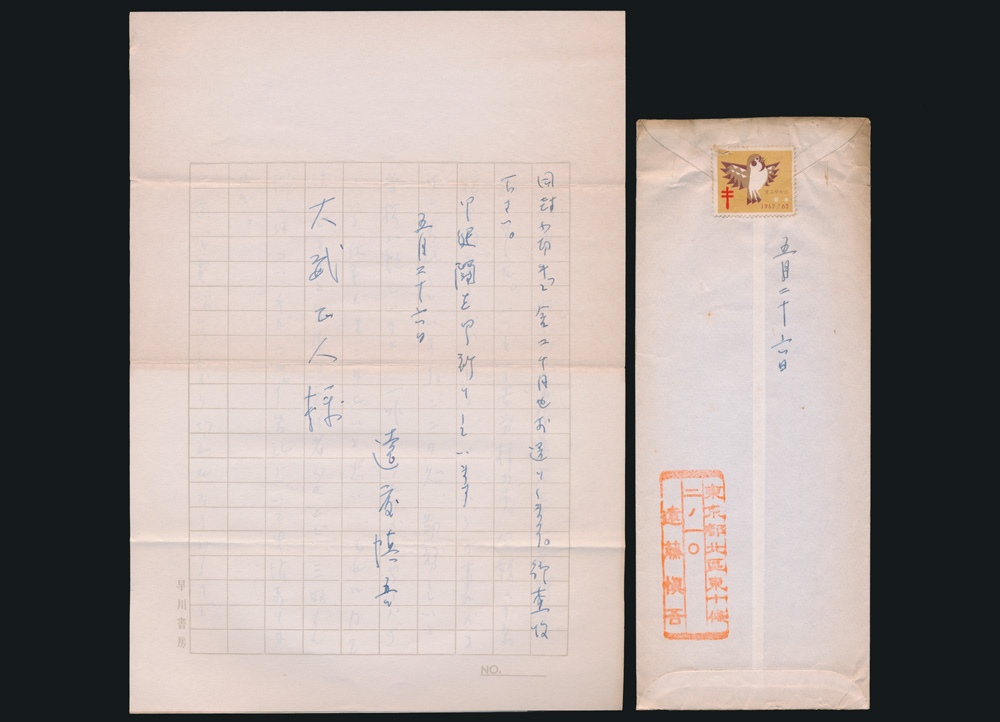 同封
金二十円也お送りします。御査収
下さい。
御健闘を御祈りしています
五月二十六日
遠藤慎吾
大武正人様
早川書房
NO.
1967/68
五月二十六日
東京都北区東十條
二ノ一〇
遠藤慎吾